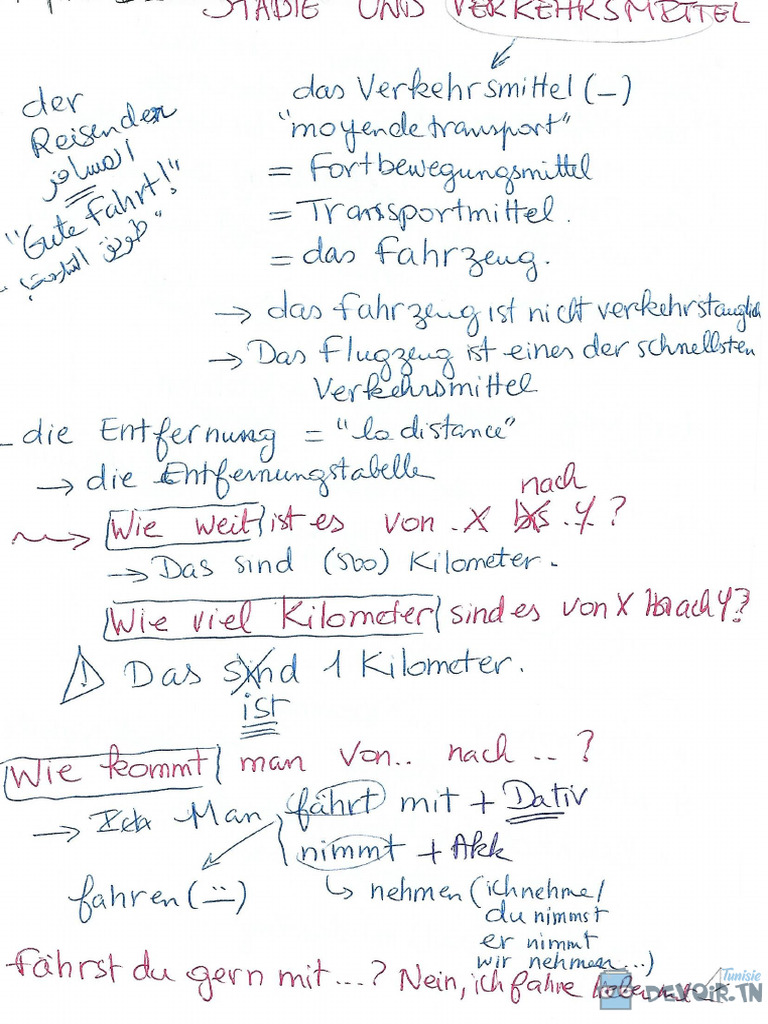 STÄDTE UND VERKEHRSMITTEL
das Verkehrsmittel (–)
"moyen de transport"
= Fortbewegungsmittel
= Transportmittel.
= das Fahrzeug.
der
Reisenden
المسافر
"Gute Fahrt!"
طريق السلامة
→ das Fahrzeug ist nicht verkehrstauglich
→ Das Flugzeug ist eines der schnellsten
Verkehrsmittel
– die Entfernung = "la distance"
→ die Entfernungstabelle
nach
Wie weit ist es von .X bis .Y ?
→ Das sind (500) Kilometer.
Wie viel Kilometer sind es von X nach Y?
⚠ Das sind 1 Kilometer.
ist
Wie kommt man von.. nach ... ?
→ Man fährt mit + Dativ
nimmt + Akk
fahren (–̈)
↳ nehmen (ich nehme /
du nimmst
er nimmt
wir nehmen ...)
Fährst du gern mit ... ? Nein, ich fahre
Tunisie
DEVOIR.TN